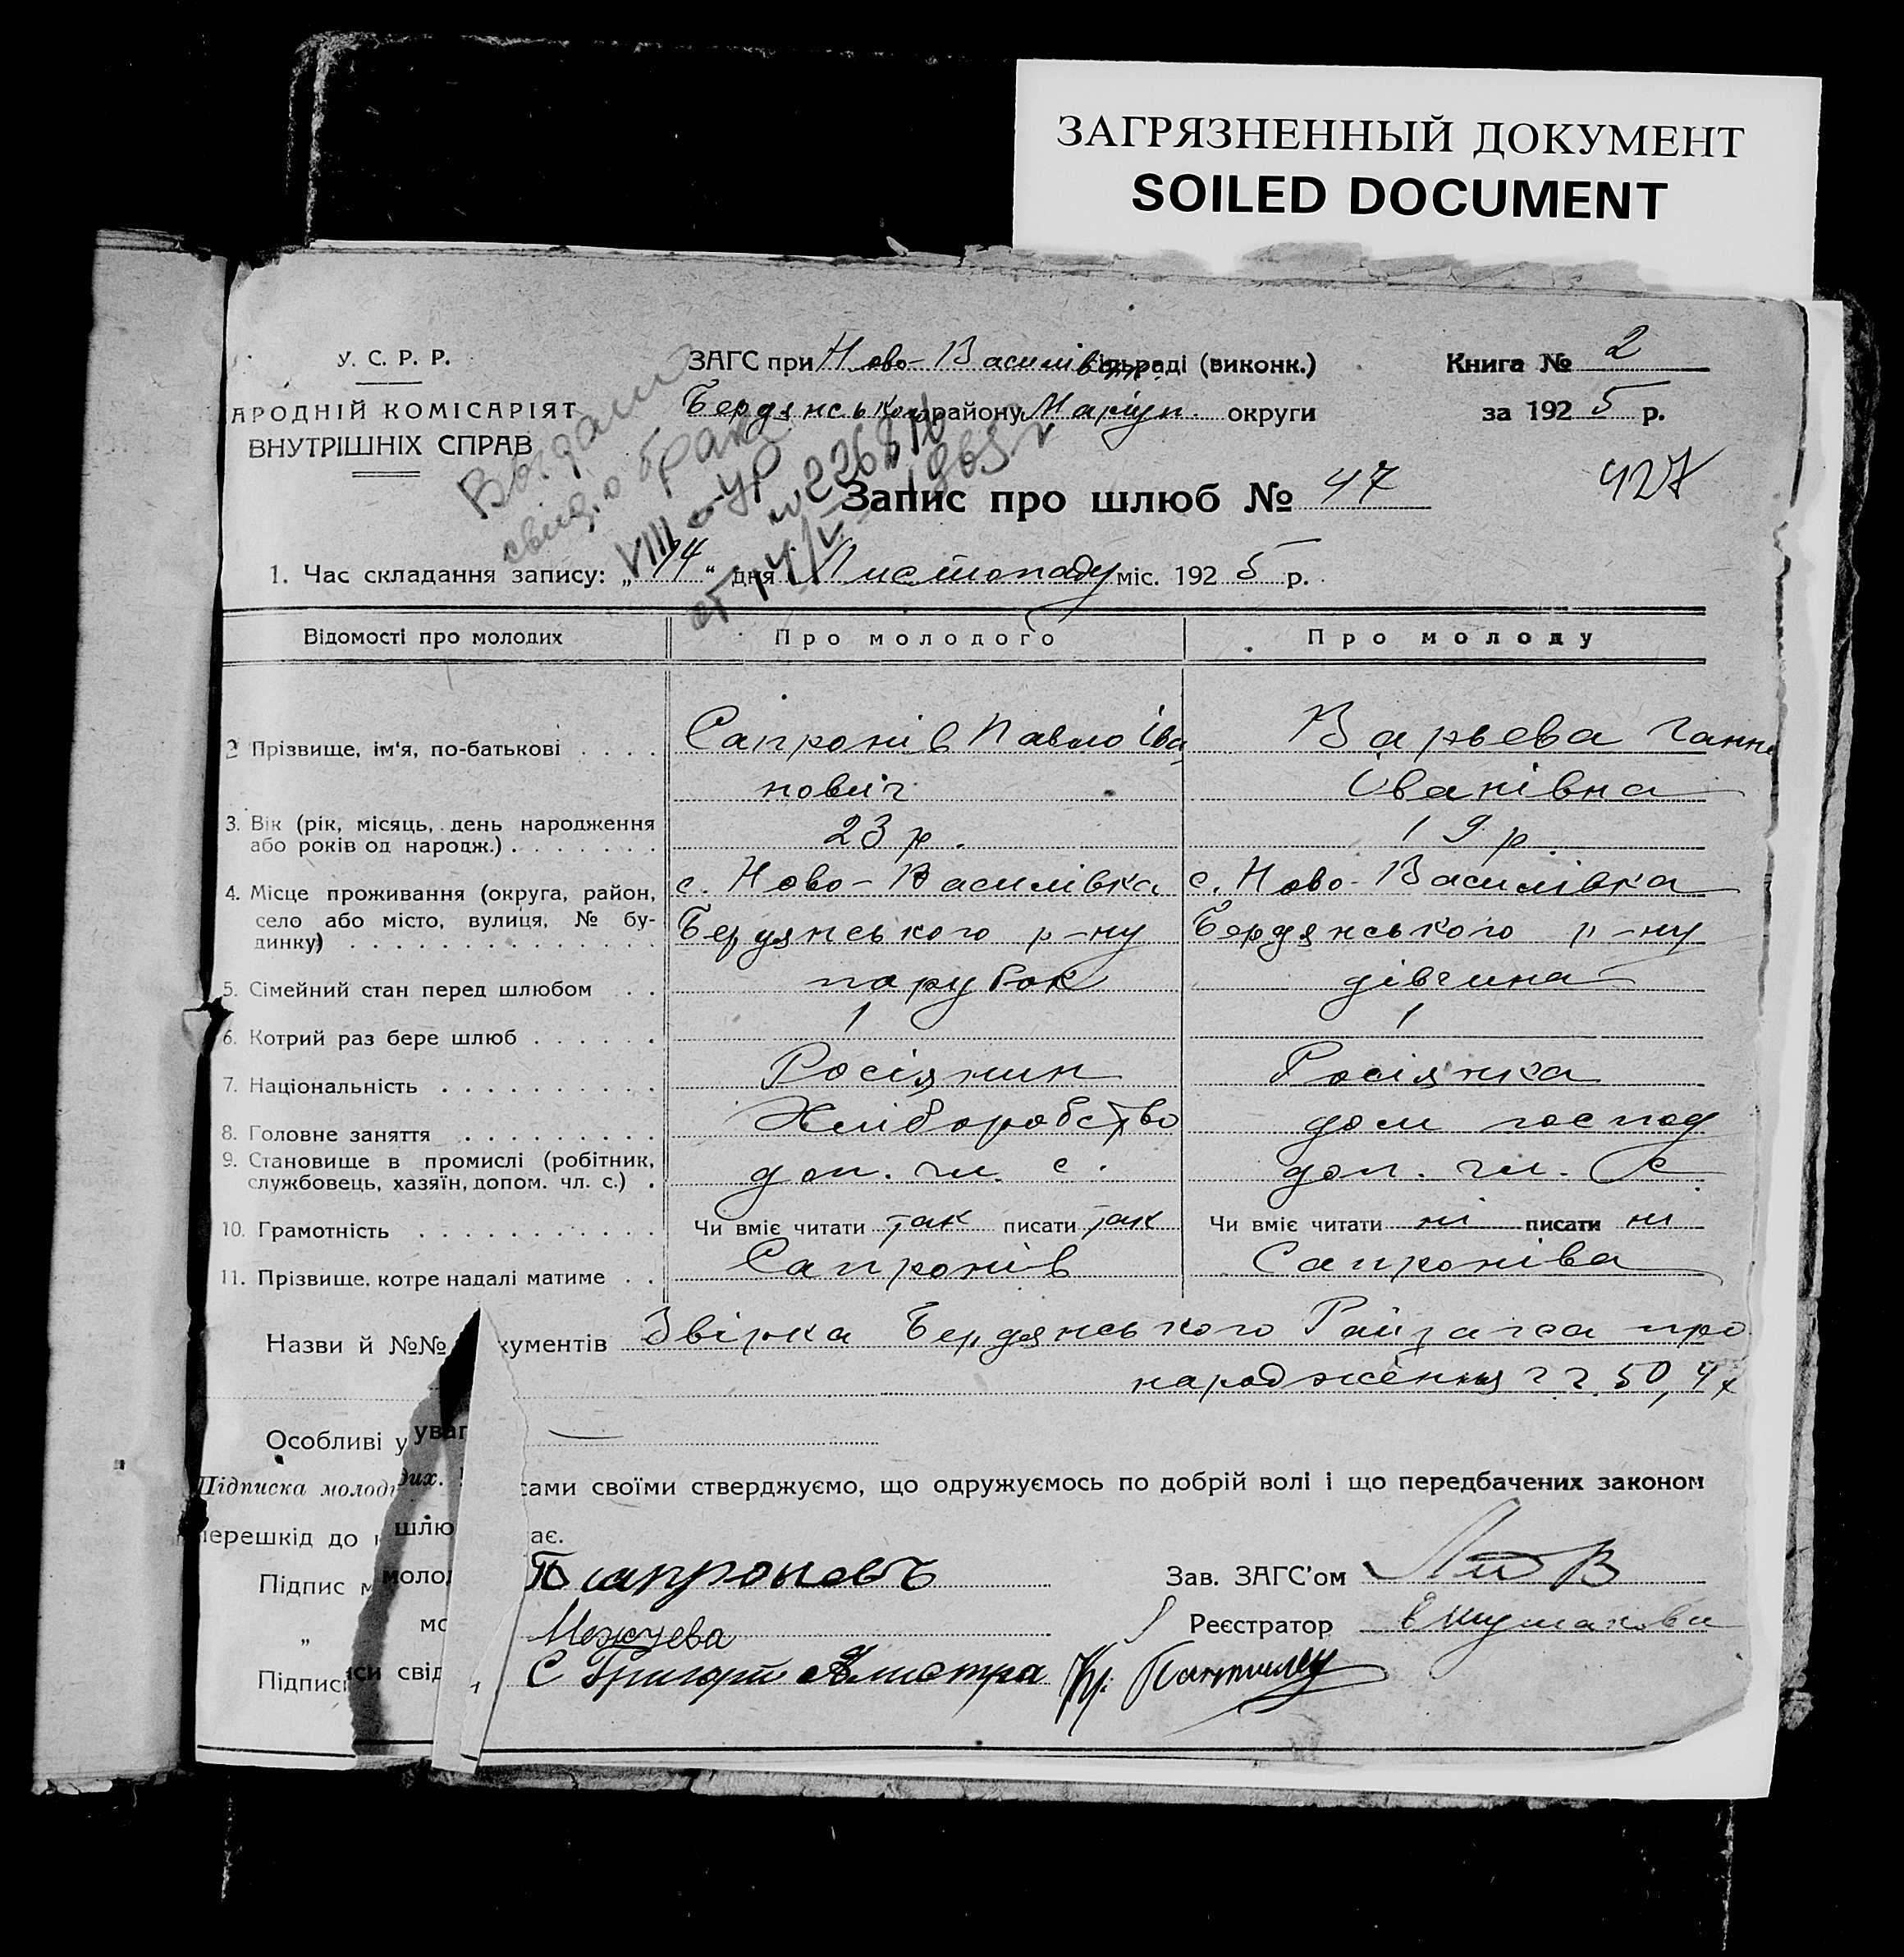 ЗАГРЯЗНЕННЫЙ ДОКУМЕНТ
SOILED DOCUMENT
У. С. Р. Р.
АРОДНІЙ КОМІСАРІЯТ
ВНУТРІШНІХ СПРАВ
ЗАГС при Ново-Василівськ. сільраді (виконк.)
Бердянського району Маріуп. округи
Книга № 2
за 192 5 р.
427
Выдано
свид. о браке
VIII-УР
№ 226816
от 14/V 1965 г
Запис про шлюб № 47
1. Час складання запису: „ 14 “ дня Листопаду міс. 192 5 р.
Відомості про молодих Про молодого Про молоду
2 Прізвище, ім'я, по-батькові . . . . Сапронів Павло Іва Варьева Ганна
нович Іванівна
3. Вік (рік, місяць, день народження
або років од народж.) . . . . . . . 23 р. 19 р
4. Місце проживання (округа, район, с. Ново-Василівка с. Ново-Василівка
село або місто, вулиця, № бу-
динку) . . . . . . . . . . . . . . Бердянського р-ну Бердянського р-ну
5. Сімейний стан перед шлюбом . . парубок дівчина
6. Котрий раз бере шлюб . . . . . . 1 1
7. Національність . . . . . . . . . . Росіянин Росіянка
8. Головне заняття . . . . . . . . . Хліборобство дом господ
9. Становище в промислі (робітник,
службовець, хазяїн, допом. чл. с.) . доп. чл. с. доп. чл. с.
10. Грамотність . . . . . . . . . . . Чи вміє читати так писати так Чи вміє читати ні писати ні
11. Прізвище, котре надалі матиме . . Сапронів Сапроніва
Назви й №№ кументів Звірка Бердянського Райзагса про
народження г г. 50, 47
Особливі у уваг
Підписка молоди дих. сами своїми стверджуємо, що одружуємось по добрій волі і що передбачених законом
перешкід до шлю ає.
Підпис м молод П Сапроновъ Зав. ЗАГС'ом
„ мо Реєстратор
Підписи си свід С Григорий